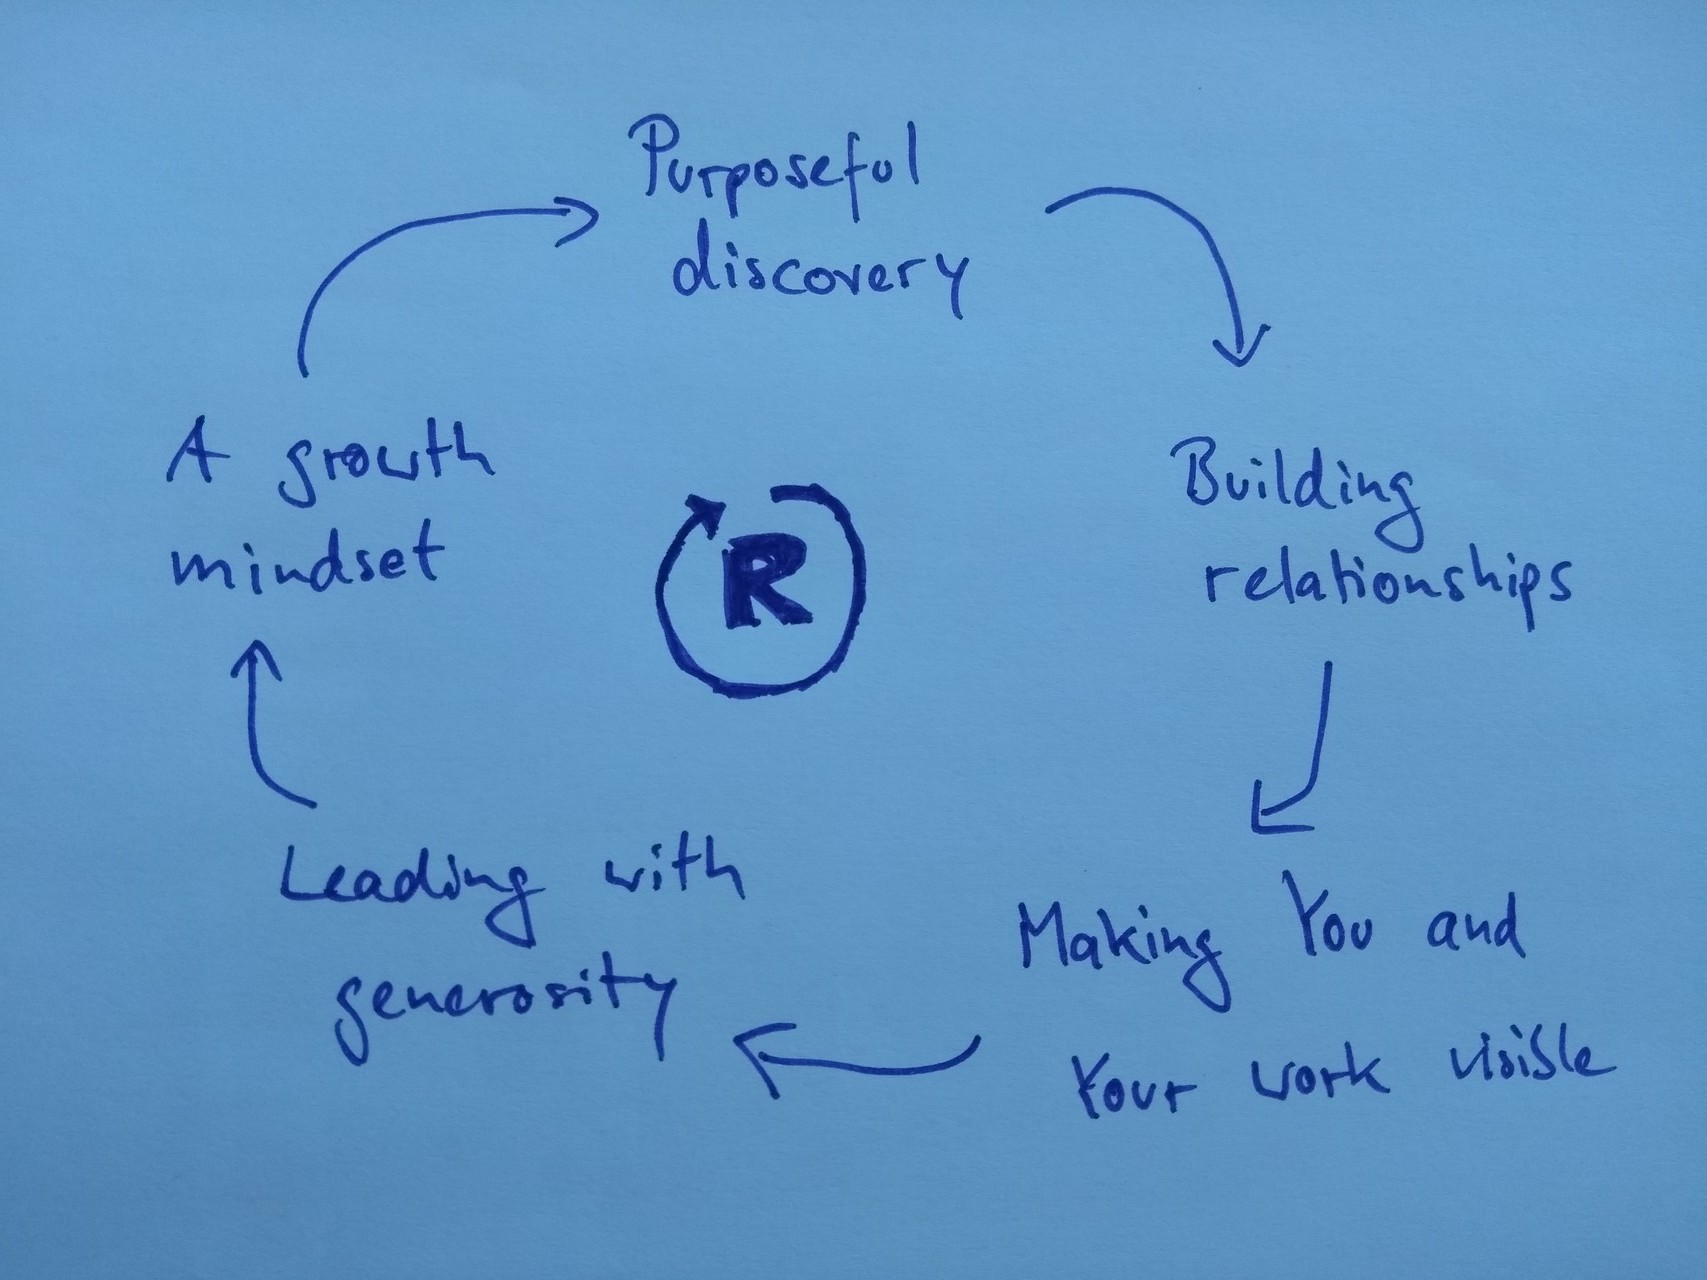 Purposeful
discovery
Building
relationships
Making You and
Your work visible
Leading with
generosity
A growth
mindset
R